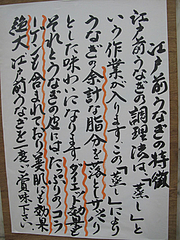 江戸前うなぎの特徴
江戸前うなぎの調理法は、「蒸し」と
いう作業が入ります。この「蒸し」により
うなぎの余計な脂分を落しサッパリ
とした味わいになります。ダイエット効果大
それとうなぎの皮にはたっぷりのコラ
ーゲンも含まれており、美肌にも効果
絶大 江戸前うなぎを一度ご賞味下さい。